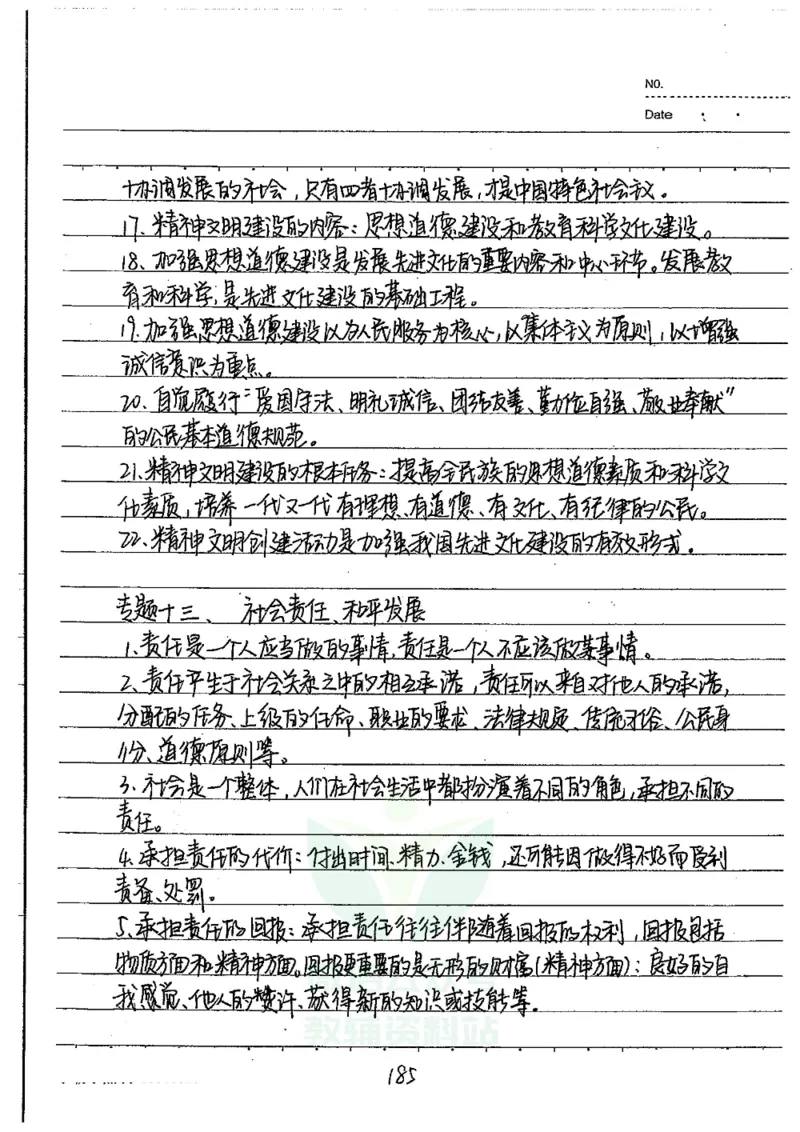 NO.
Date
协调发展的社会，只有四者协调发展，才是中国特色社会主义。
17、精神文明建设的内容：思想道德建设和教育科学文化建设。
18、加强思想道德建设是发展先进文化的重要内容和中心环节。发展教
育和科学，是先进文化建设的基础工程。
19、加强思想道德建设以为人民服务为核心，以集体主义为原则，以增强
诚信意识为重点。
20、自觉履行“爱国守法、明礼诚信、团结友善、勤俭自强、敬业奉献”
的公民基本道德规范。
21、精神文明建设的根本任务：提高全民族的思想道德素质和科学文
化素质，培养一代又一代有理想、有道德、有文化、有纪律的公民。
22、精神文明创建活动是加强我国先进文化建设的有效形式。
专题十三、 社会责任、和平发展
1、责任是一个人应当做的事情，责任是一个人不应该做某事情。
2、责任产生于社会关系之中的相互承诺，责任可以来自对他人的承诺，
分配的任务、上级的任命、职业的要求、法律规定、传统习俗、公民身
份、道德原则等。
3、社会是一个整体，人们在社会生活中都扮演着不同的角色，承担不同的
责任。
4、承担责任的代价：付出时间、精力、金钱，还可能因做得不好而受到
责备、处罚。
5、承担责任的回报：承担责任往往伴随着回报的权利，回报包括
物质方面和精神方面。回报更重要的是无形的财富(精神方面)：良好的自
我感觉、他人的赞许、获得新的知识或技能等。
教辅资料站
185